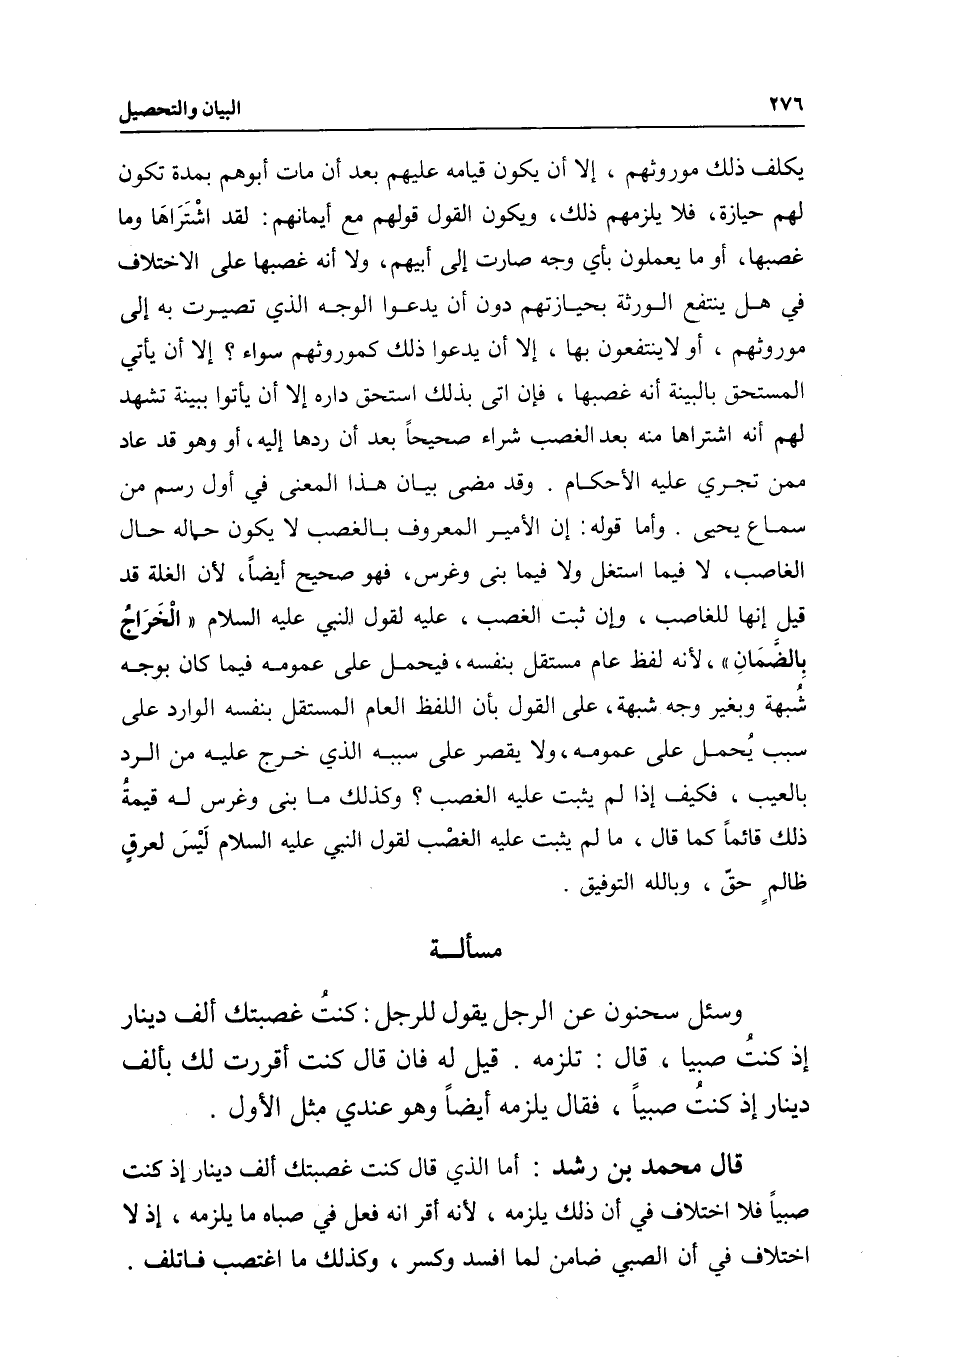 ٢٧٦ البيان والتحصيل
يكلف ذلك موروثهم ، إلا أن يكون قيامه عليهم بعد أن مات أبوهم بمدة تكون
لهم حيازة، فلا يلزمهم ذلك، ويكون القول قولهم مع أيمانهم: لقد اشْتَرَاهَا وما
غصبها، أو ما يعملون بأي وجه صارت إلى أبيهم، ولا أنه غصبها على الاختلاف
في هـل ينتفع الـورثة بحيـازتهم دون أن يدعـوا الوجـه الذي تصيـرت به إلى
موروثهم ، أو لاينتفعون بها ، إلا أن يدعوا ذلك كموروثهم سواء ؟ إلا أن يأتي
المستحق بالبينة أنه غصبها ، فإن اتى بذلك استحق داره إلا أن يأتوا ببينة تشهد
لهم أنه اشتراها منه بعد الغصب شراء صحيحاً بعد أن ردها إليه، أو وهو قد عاد
ممن تجـري عليه الأحكـام . وقد مضى بيـان هـذا المعنى في أول رسم من
سمـاع يحيى . وأما قوله: إن الأميـر المعروف بـالغصب لا يكون حـاله حـال
الغاصب، لا فيما استغل ولا فيما بنى وغرس، فهو صحيح أيضاً، لأن الغلة قد
قيل إنها للغاصب ، وإن ثبت الغصب ، عليه لقول النبي عليه السلام « الْخَرَاجُ
بِالضَّمَانِ» ، لأنه لفظ عام مستقل بنفسه، فيحمـل على عمومـه فيما كان بوجـه
شُبهة وبغير وجه شبهة، على القول بأن اللفظ العام المستقل بنفسه الوارد على
سبب يُحمـل على عمومـه، ولا يقصر على سببـه الذي خـرج عليـه من الـرد
بالعيب ، فكيف إذا لم يثبت عليه الغصب ؟ وكذلك مـا بنى وغرس لـه قيمةُ
ذلك قائماً كما قال ، ما لم يثبت عليه الغصْب لقول النبي عليه السلام لَيْسَ لعرقٍ
ظالمٍ حقّ ، وبالله التوفيق .
مسألـــة
وسئل سحنون عن الرجل يقول للرجل: كنتُ غصبتك ألف دينار
إذ كنتُ صبيا ، قال : تلزمه . قيل له فان قال كنت أقررت لك بألف
دينار إذ كنتُ صبياً ، فقال يلزمه أيضاً وهو عندي مثل الأول .
قال محمد بن رشد : أما الذي قال كنت غصبتك ألف دينار إذ كنت
صبياً فلا اختلاف في أن ذلك يلزمه ، لأنه أقر انه فعل في صباه ما يلزمه ، إذ لا
اختلاف في أن الصبي ضامن لما افسد وكسر ، وكذلك ما اغتصب فـاتلف .